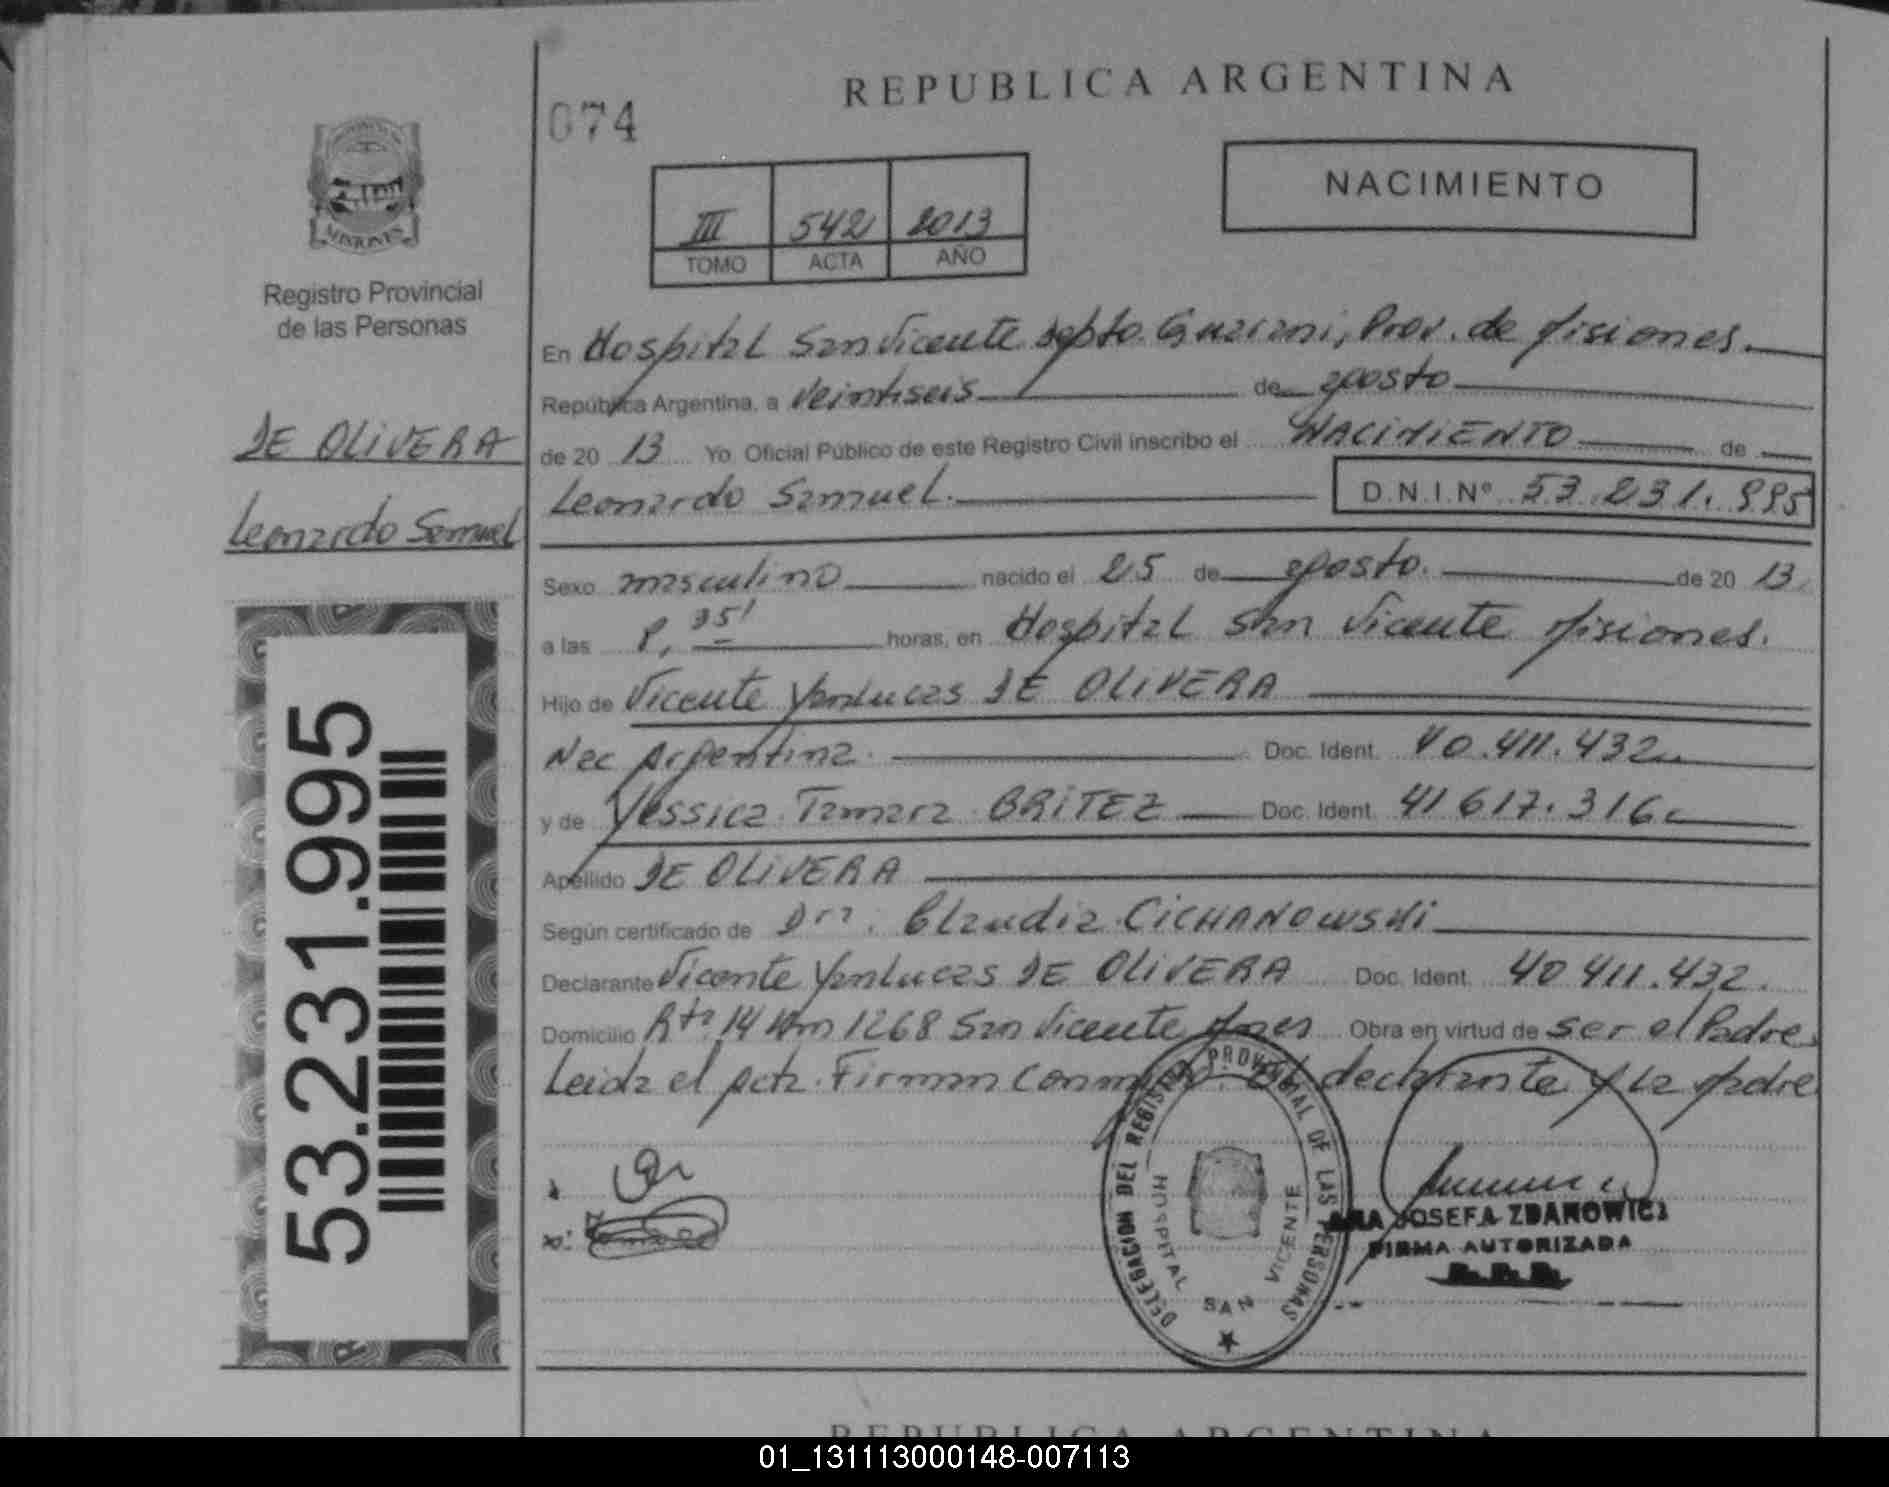 REPUBLICA ARGENTINA
074
NACIMIENTO
III 542 2013
TOMO ACTA AÑO
MISIONES
Registro Provincial
de las Personas
DE OLIVERA
Leonardo Samuel
53.231.995
En Hospital San Vicente Depto. Guarani, Prov. de Misiones.
República Argentina, a Veintiseis de agosto
de 20 13 Yo Oficial Público de este Registro Civil inscribo el NACIMIENTO de
Leonardo Samuel. D.N.I.Nº 53.231.995
Sexo masculino nacido el 25 de agosto. de 20 13.
a las 35' horas, en Hospital San Vicente Misiones.
Hijo de Vicente Yanlucas DE OLIVERA
Nac Argentina. Doc. Ident. 40.411.432
y de Yessica Tamara BRITEZ Doc. Ident. 41 617.316
Apellido DE OLIVERA
Según certificado de Dra. Claudia CICHANOWSKI
Declarante Vicente Yanlucas DE OLIVERA Doc. Ident. 40 411.432.
Domicilio Rta 14 Km 1268 San Vicente Mnes Obra en virtud de ser el Padre
Leida el acta. Firman conmigo el declarante y la Madre
DELEGACION DEL REGISTRO PROVINCIAL DE LAS PERSONAS
HOSPITAL SAN VICENTE
ANA JOSEFA ZDANOWICZ
FIRMA AUTORIZADA
REPUBLICA ARGENTINA
01_131113000148-007113